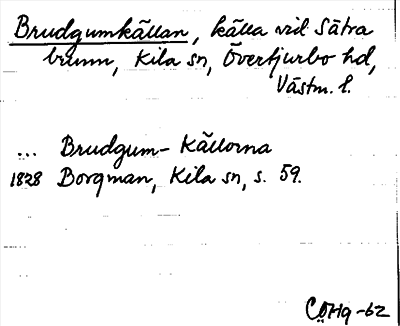 Brudgumkällan, källa vid Sätra
brunn, Kila sn, Övertjurbo hd,
Västm. l.
... Brudgum-Källorna
1828 Borgman, Kila sn, s. 59.